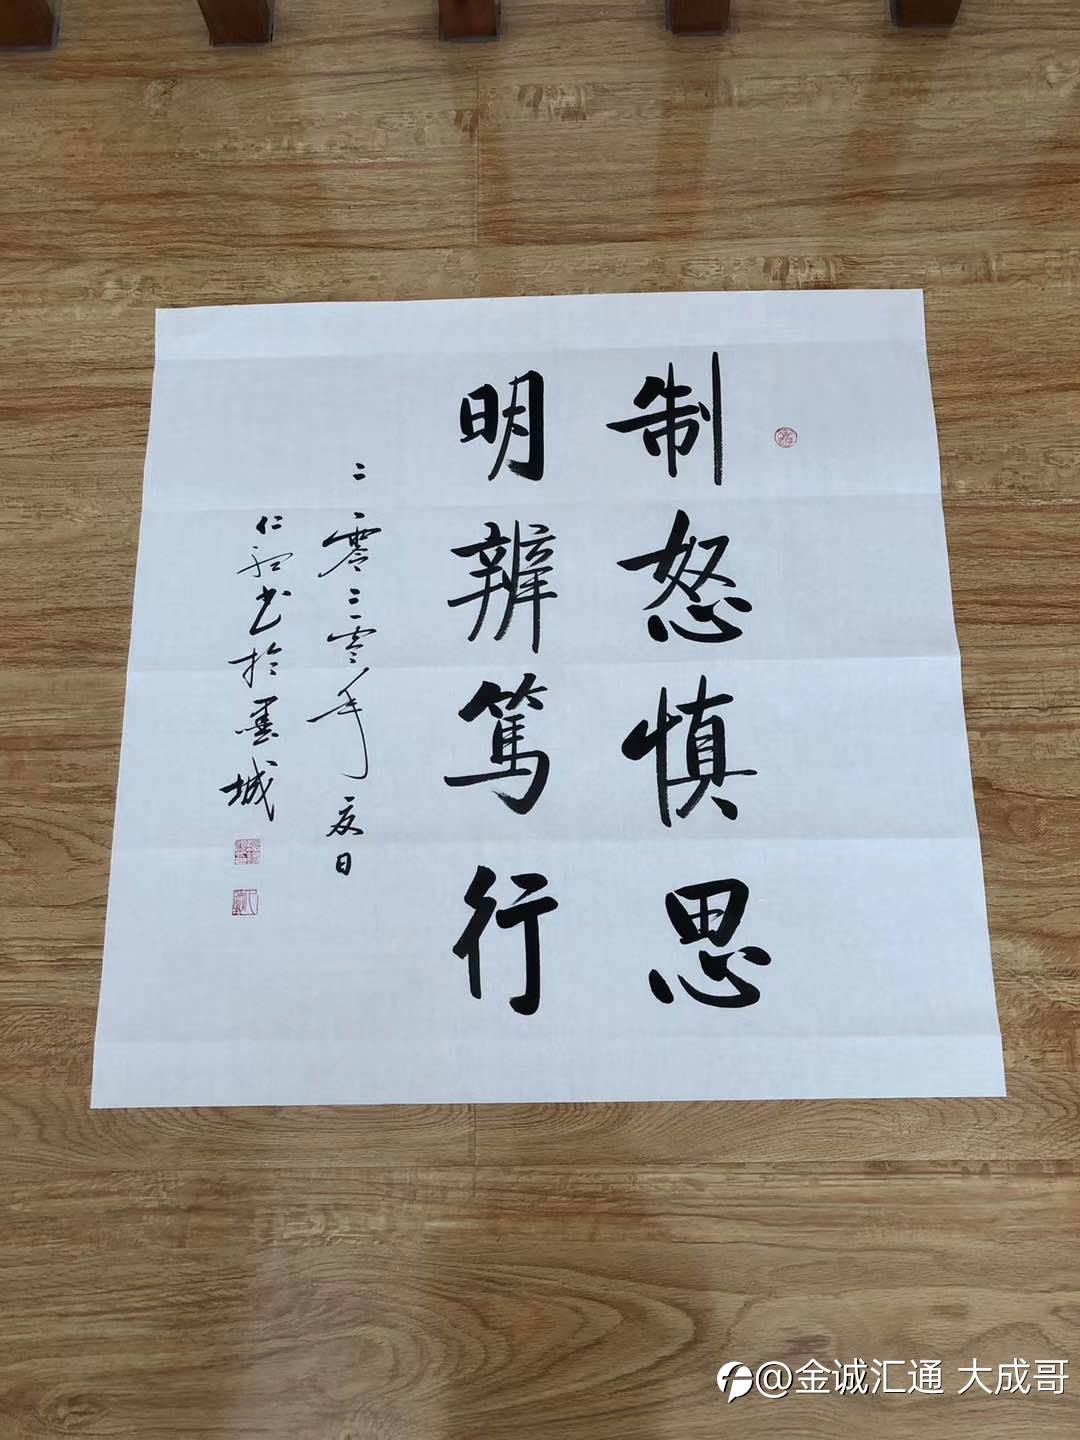 制怒慎思
明辨笃行
二零二零年夏日
仁和书於墨城
@金诚汇通 大成哥